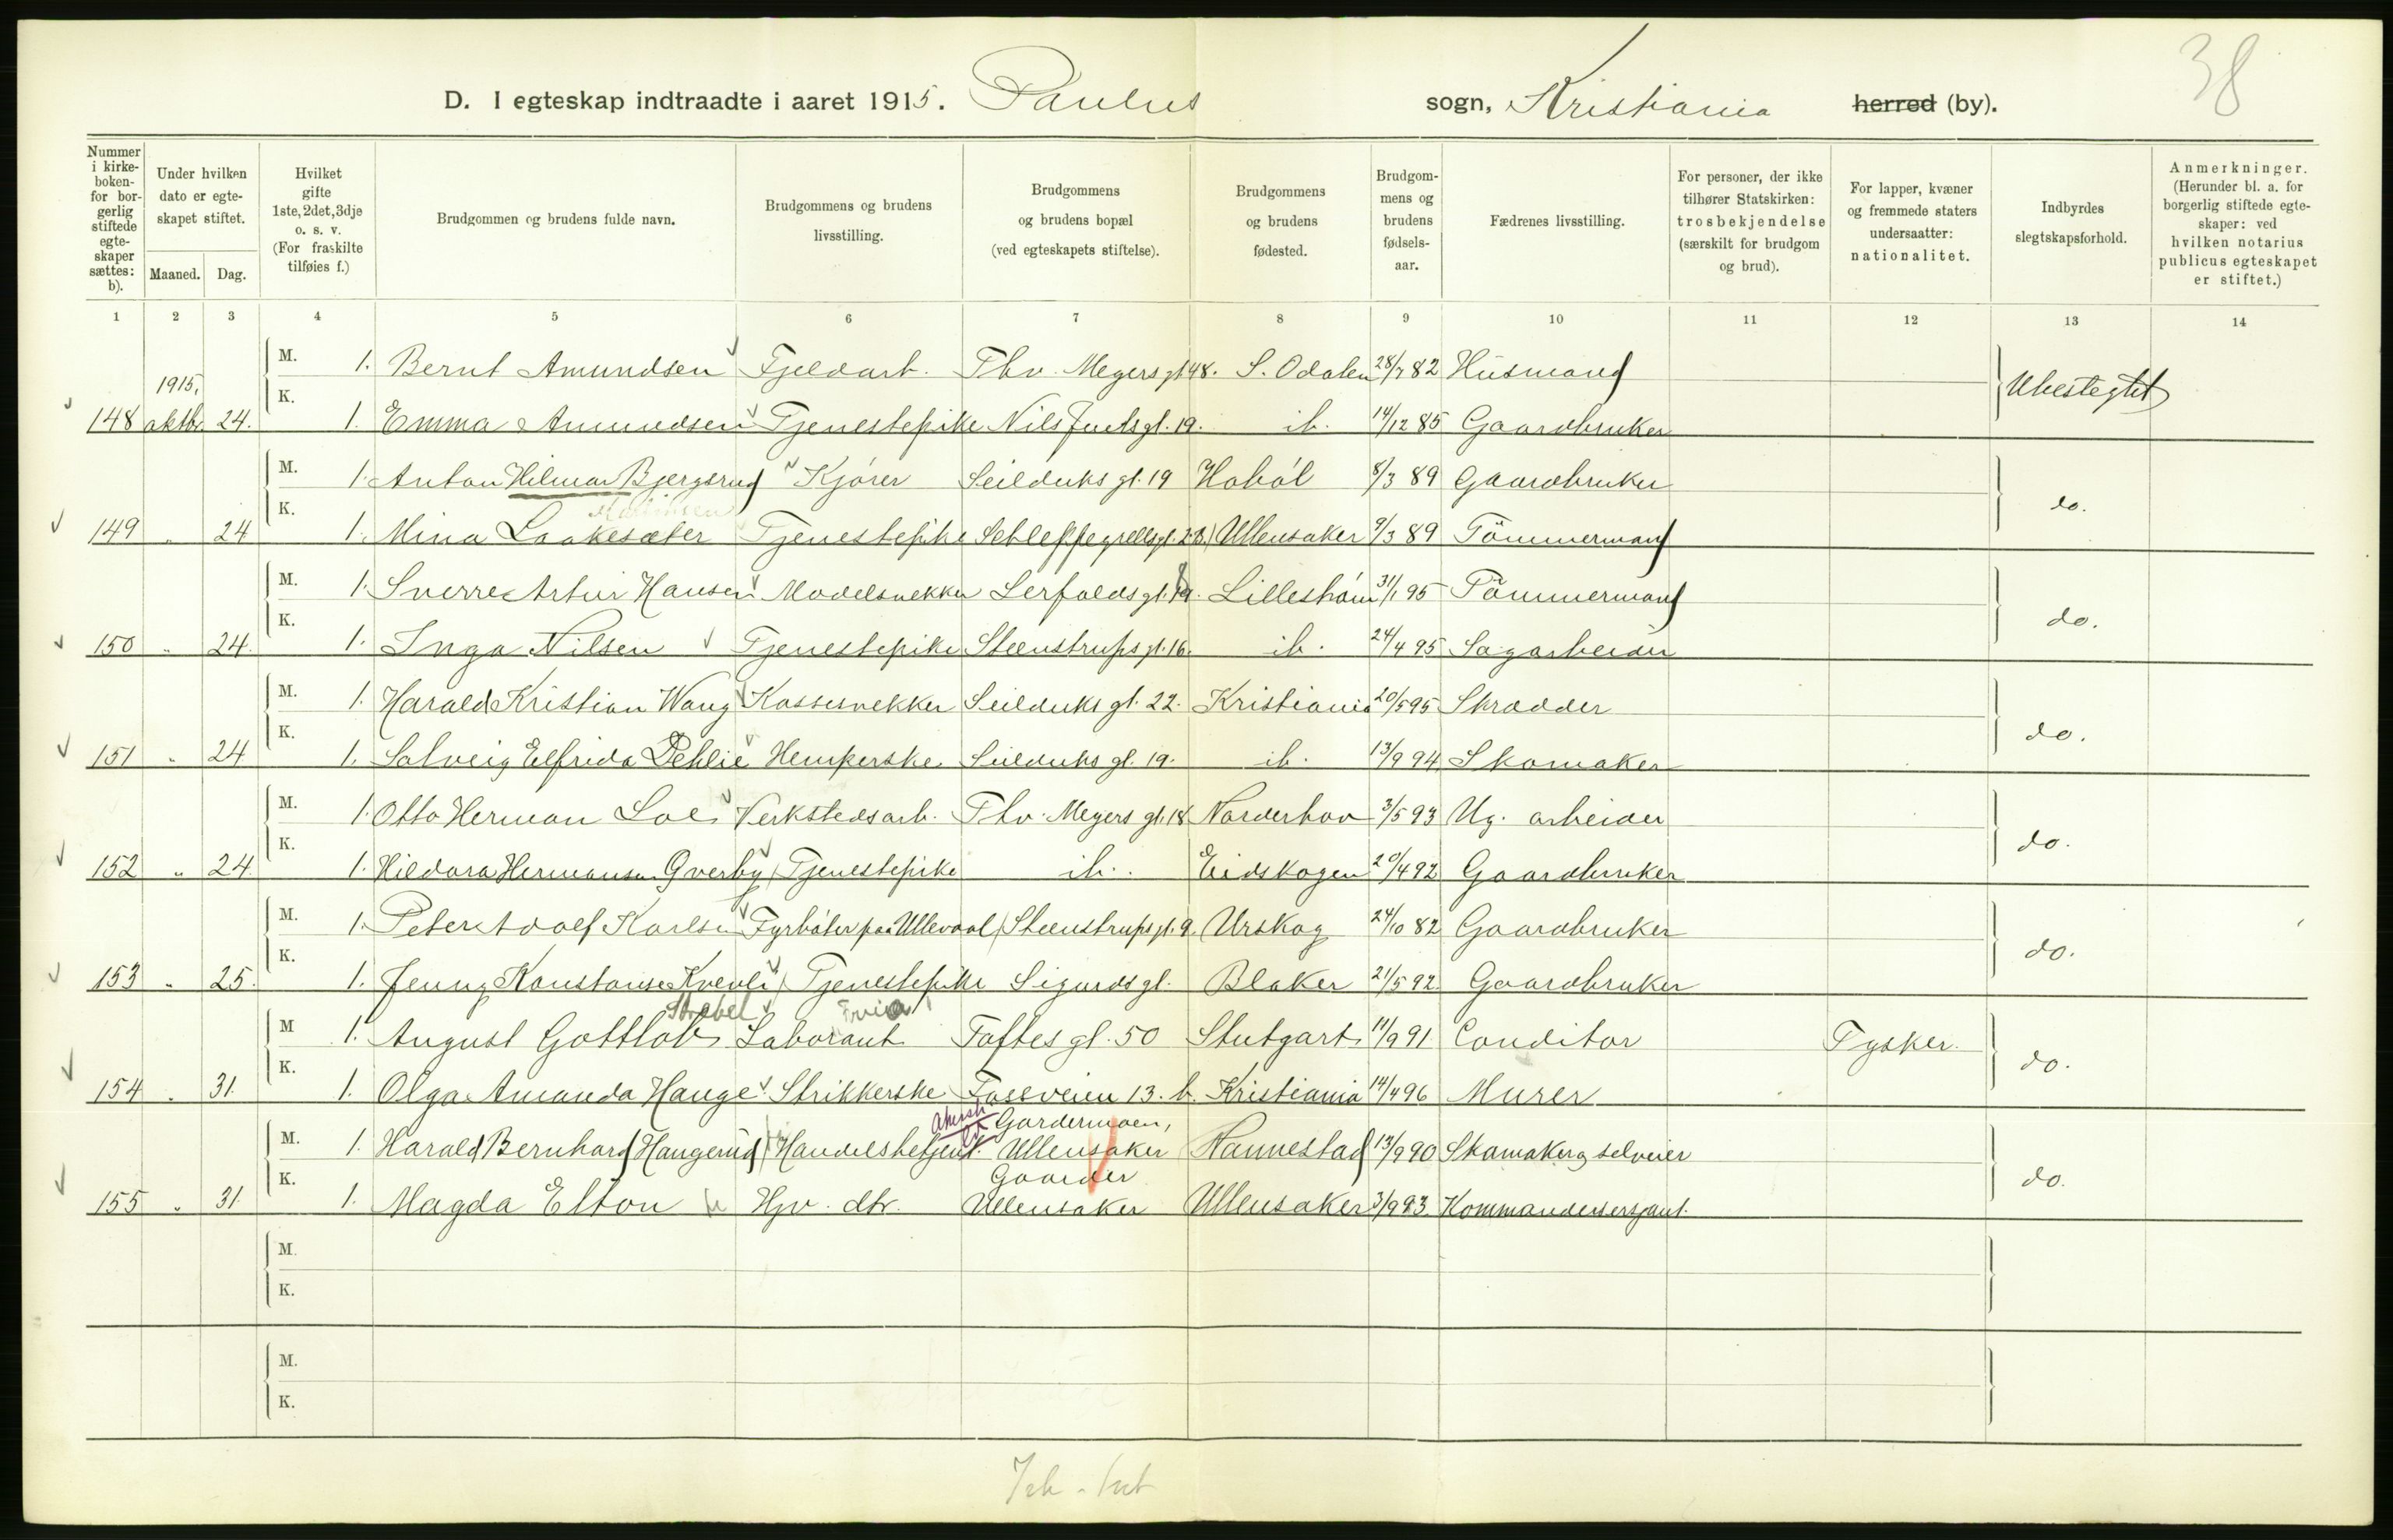 38
D. I egteskap indtraadte i aaret 1915. Paulus sogn, Kristiania herred (by).
Nummer i kirkeboken- for borgerlig stiftede egteskaper sættes: b).
Under hvilken dato er egteskapet stiftet.
Maaned. Dag.
Hvilket gifte 1ste, 2det, 3dje o. s. v. (For fraskilte tilføies f.)
Brudgommen og brudens fulde navn.
Brudgommens og brudens livsstilling.
Brudgommens og brudens bopæl (ved egteskapets stiftelse).
Brudgommens og brudens fødested.
Brudgommens og brudens fødselsaar.
Fædrenes livsstilling.
For personer, der ikke tilhører Statskirken: trosbekjendelse (særskilt for brudgom og brud).
For lapper, kvæner og fremmede staters undersaatter: nationalitet.
Indbyrdes slegtskapsforhold.
Anmerkninger. (Herunder bl. a. for borgerlig stiftede egteskaper: ved hvilken notarius publicus egteskapet er stiftet.)
1 2 3 4 5 6 7 8 9 10 11 12 13 14
1915.
M. 1. Bernt Amundsen Fjeldarb. Thv. Meyers gt 48. S. Odalen 28/7 82 Husmand Ubeslegtet
148 oktbr. 24. K. 1. Emma Amundsen Tjenestepike Nils Juels gt. 19. ib. 14/12 85 Gaardbruker
M. 1. Anton Hilmar Bjergsrud Kjører Seilduks gt. 19 Hobøl 8/3 89 Gaardbruker do.
149 " 24 K. 1. Mina Laakesæter Tjenestepike Schleppegrellsgt. 23. Ullensaker 9/3 89 Tømmermand
M. 1. Sverre Artur Hansen Modelsnekker Lerfaldsgt. Lillestrøm 31/1 95 Tømmermand do.
150 " 24. K. 1. Inga Nilsen Tjenestepike Steenstrups gt. 16. ib. 24/4 95 Sagarbeider
M. 1. Harald Kristian Wang Kassesnekker Seilduks gt. 22. Kristiania 20/5 95 Skrædder do.
151 " 24 K. 1. Solveig Elfrida Dehlie Hemperske Seilduks gt. 19. ib. 13/9 94 Skomaker
M. 1. Otto Herman Loe Verkstedsarb. Thv. Meyers gt. 18 Norderhov 3/5 93 Ug. arbeider do.
152 " 24. K. 1. Hildora Hermansen Qverby Tjenestepike ib. Eidskogen 20/4 92 Gaardbruker
M. 1. Peter Adolf Karlsen Fyrbøter paa Ullevaal Steenstrups gt. 9. Urskog 24/10 82 Gaardbruker do.
153 " 25. K. 1. Jenny Konstanse Kvevli Tjenestepike Sigurds gt. Blaker 21/5 92 Gaardbruker
Strobel Freia
M 1. August Gottlob Laborant Toftes gt. 50 Stutgart 11/9 91 Conditor Tysker. do.
154 " 31. K. 1. Olga Amanda Hauge Strikkerske Fossveien 13. b. Kristiania 14/4 96 Murer
Akersh. Gardermoen,
M. 1. Harald Bernhard Haugerud Handelsbetjent. Ullensaker Nannestad 13/9 90 Skomaker og selveier do.
Gaarder
155 " 31. K. 1. Magda Elton Hjv. dtr. Ullensaker Ullensaker 3/9 93. Kommandersersjant.
M.
K.
M.
K.